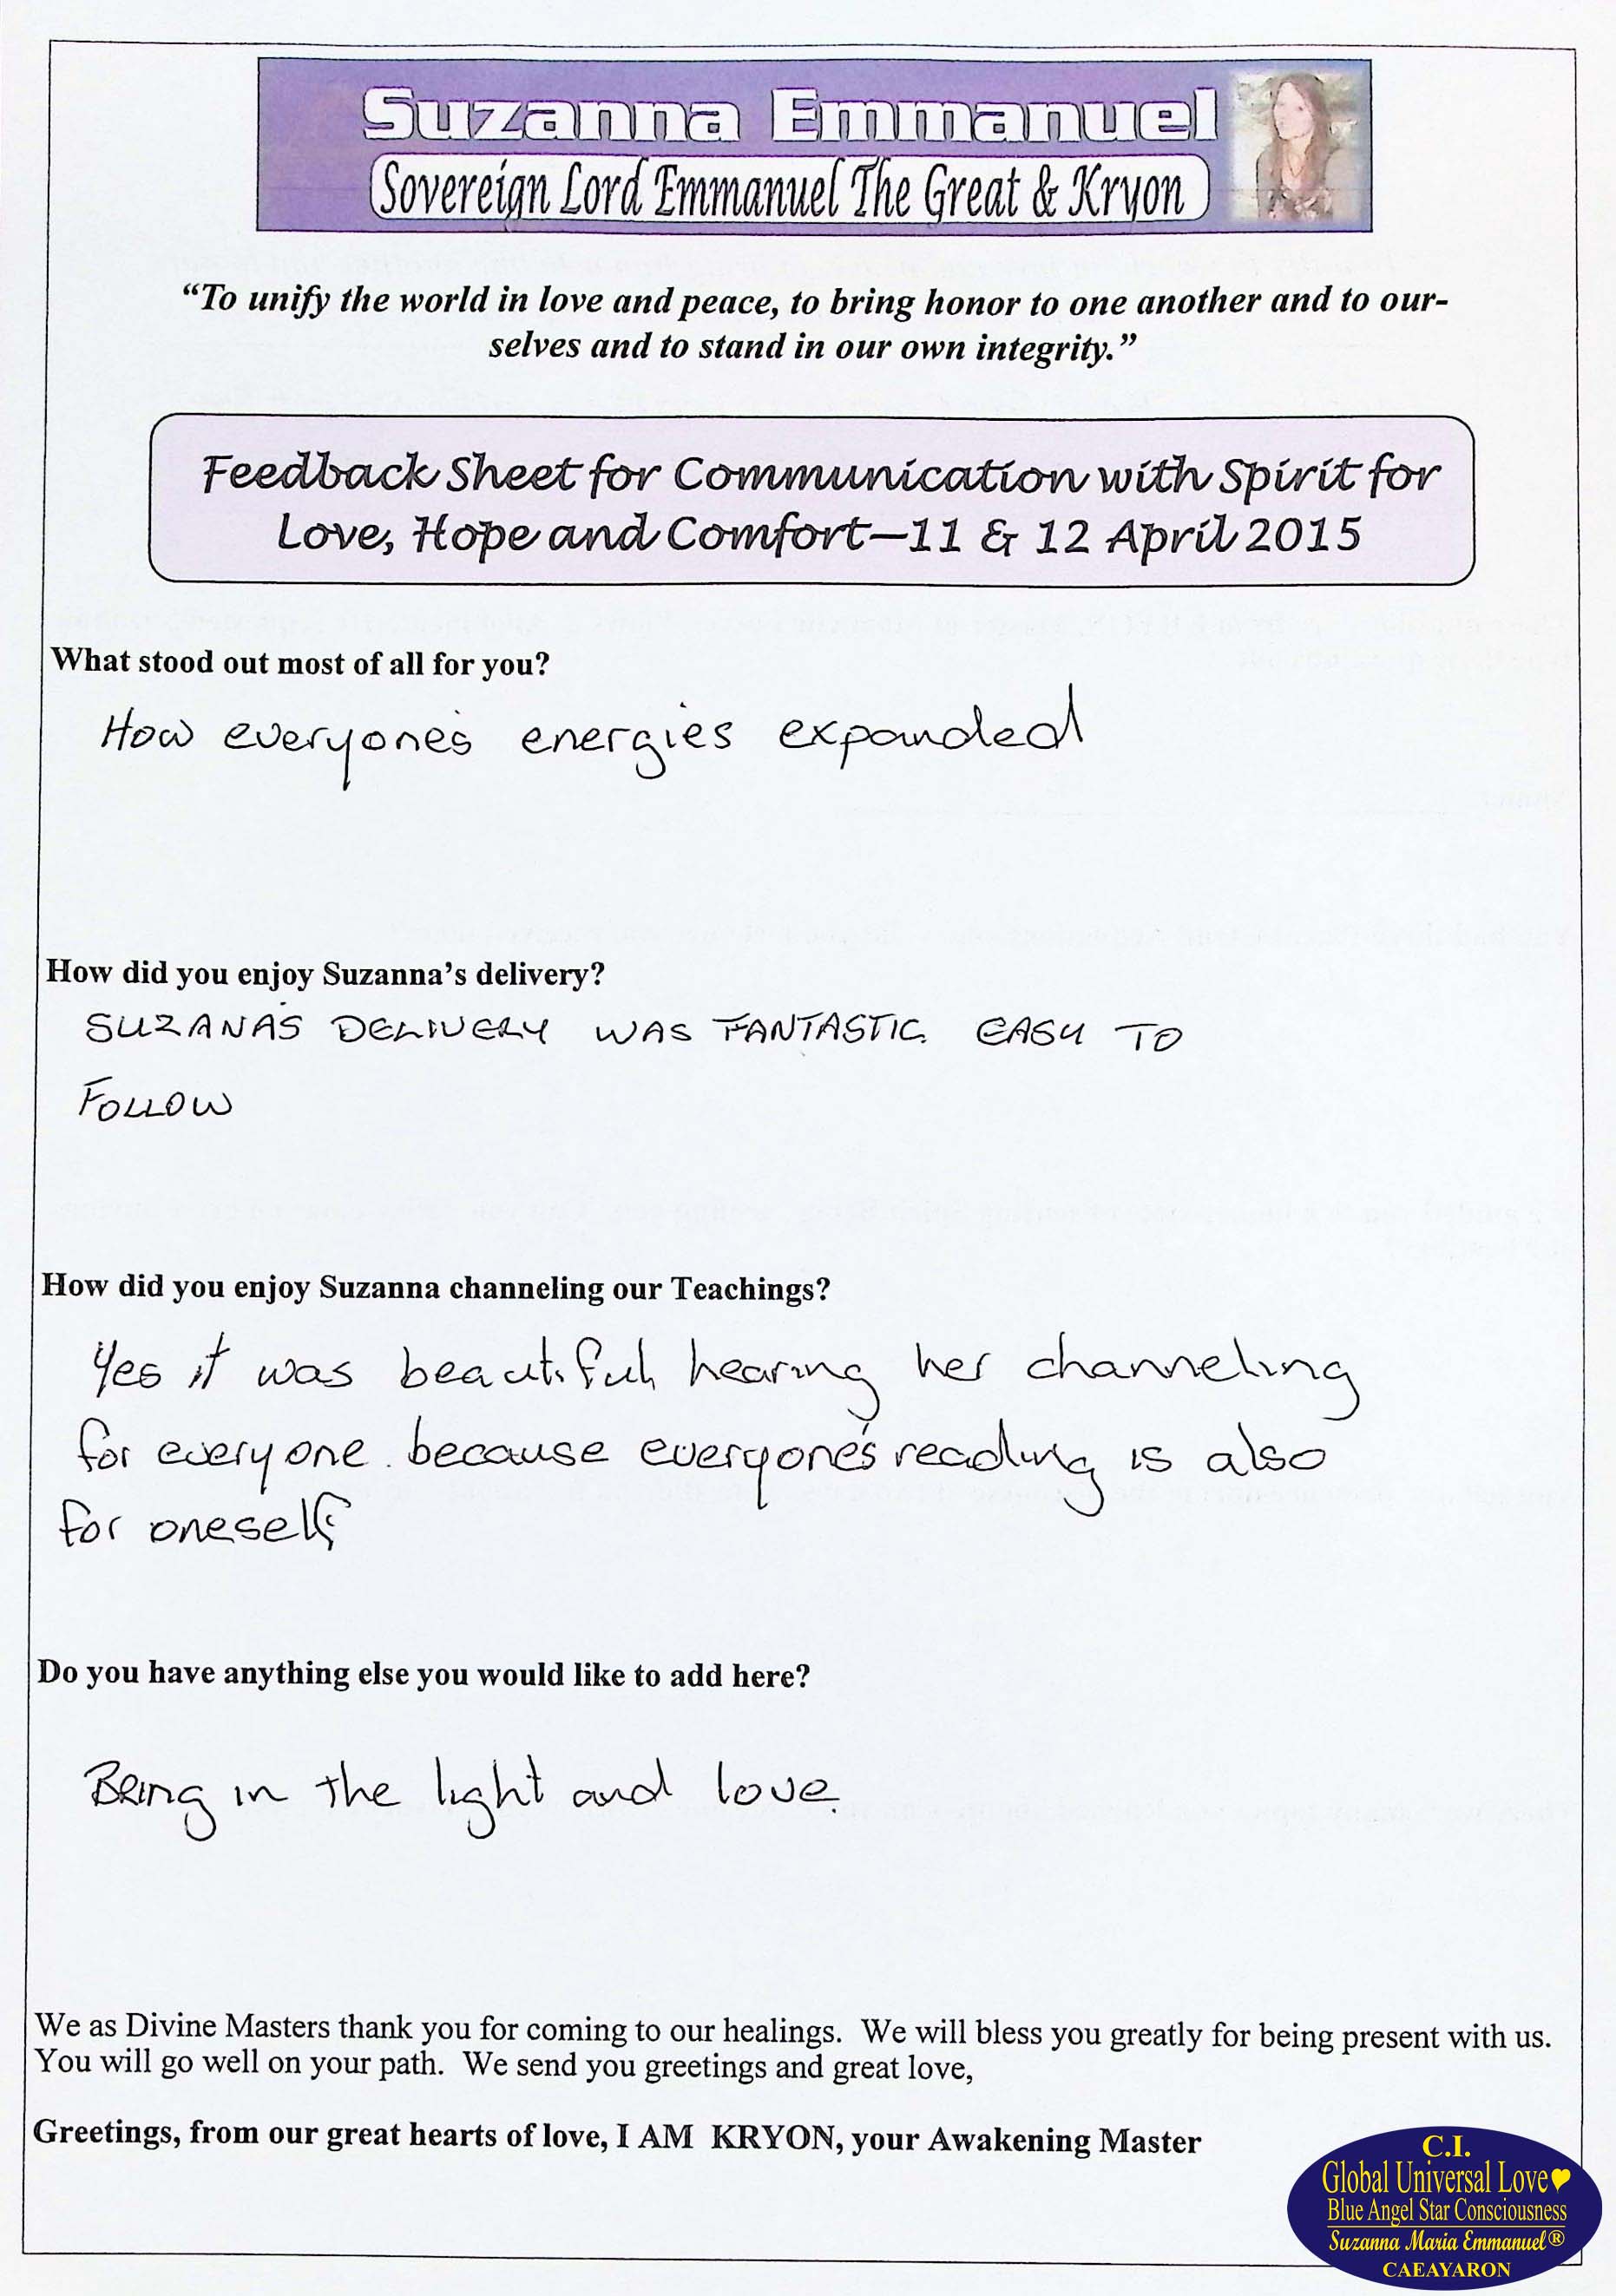 Suzanna Emmanuel
Sovereign Lord Emmanuel The Great & Kryon
“To unify the world in love and peace, to bring honor to one another and to our-
selves and to stand in our own integrity.”
Feedback Sheet for Communication with Spirit for
Love, Hope and Comfort—11 & 12 April 2015
What stood out most of all for you?
How everyone's energies expanded
How did you enjoy Suzanna’s delivery?
SUZANA'S DELIVERY WAS FANTASTIC. EASY TO
FOLLOW
How did you enjoy Suzanna channeling our Teachings?
Yes it was beautiful, hearing her channeling
for everyone. because everyone's reading is also
for oneself
Do you have anything else you would like to add here?
Being in the light and love.
We as Divine Masters thank you for coming to our healings.  We will bless you greatly for being present with us.
You will go well on your path.  We send you greetings and great love,
Greetings, from our great hearts of love, I AM  KRYON, your Awakening Master
C.I.
Global Universal Love
Blue Angel Star Consciousness
Suzanna Maria Emmanuel®
CAEAYARON